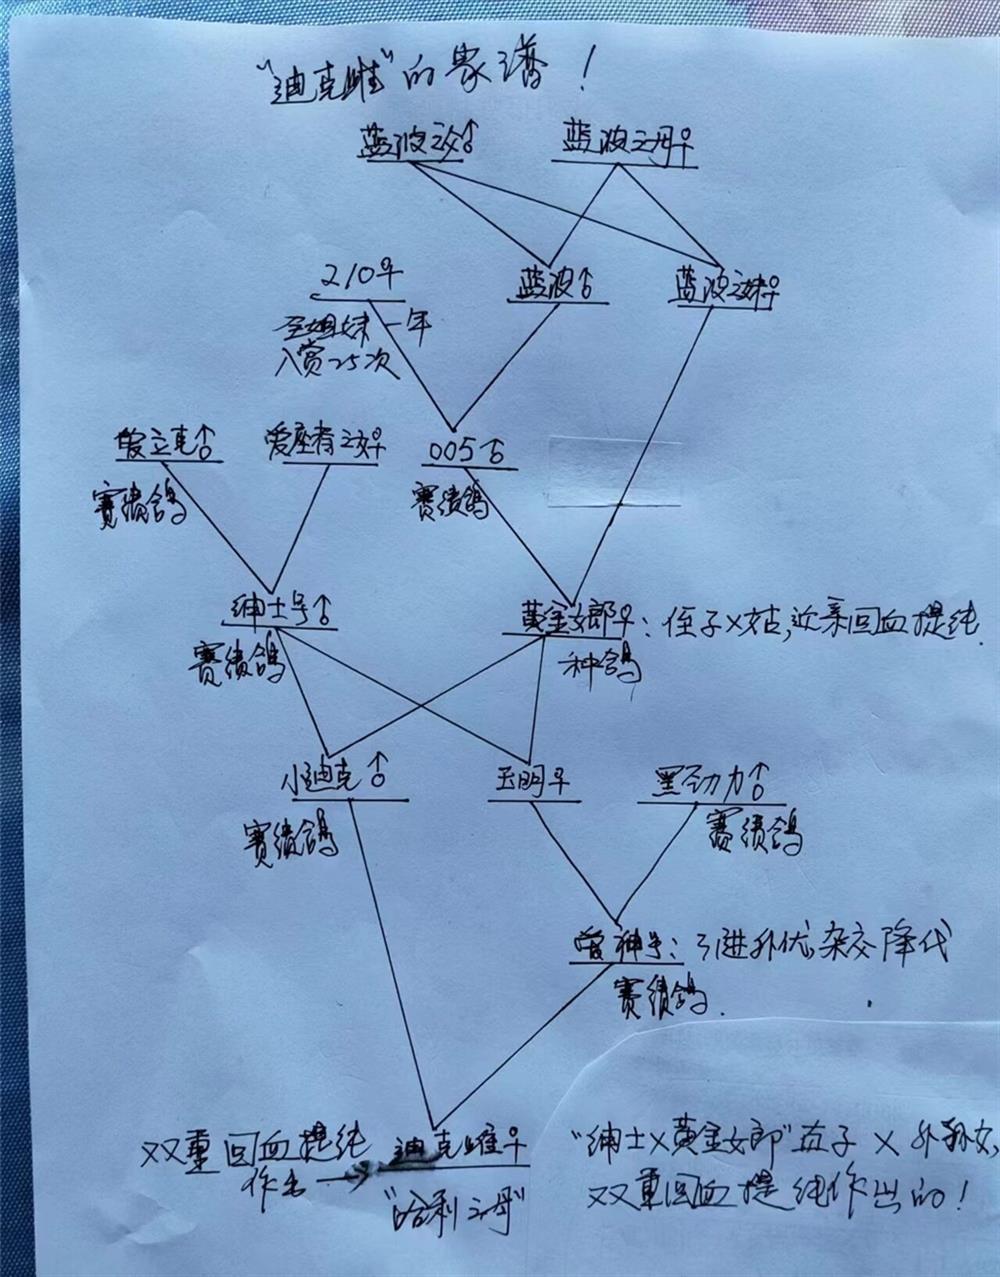 "迪克雌"的家谱！
蓝波之父♂ 蓝波之母♀
210♀ 蓝波♂ 蓝波之妹♀
全姐妹一年
入赏25次
爱立克♂ 爱座者之女♀ 005♂
赛绩鸽 赛绩鸽
绅士号♂ 黄金女郎♀：侄子×姑，近亲回血提纯
赛绩鸽 种鸽
小迪克♂ 玉明♀ 黑动力♂
赛绩鸽 赛绩鸽
爱神号：引进外优杂交降代
赛绩鸽.
双重回血提纯 迪克雌♀ "绅士×黄金女郎"直子×外孙女,
作出→ "哈利之母" 双重回血提纯作出的！